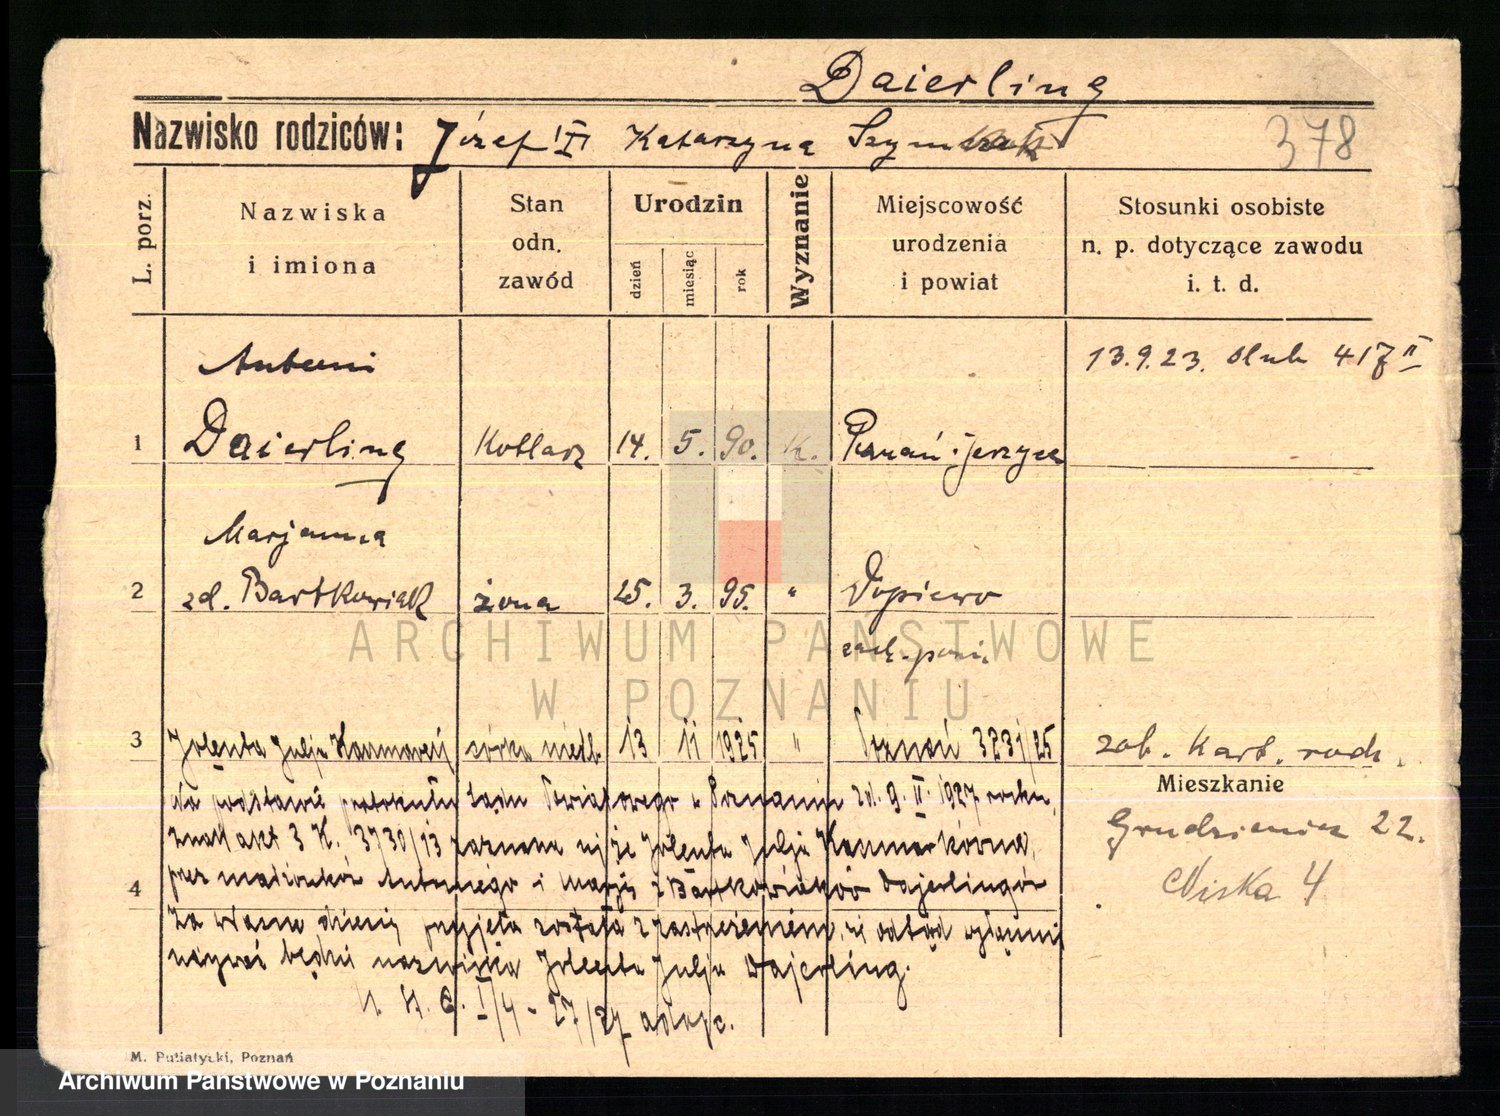 Daierling
Nazwisko rodziców: Józef Katarzyna
378
L. porz.
Nazwiska i imiona
Stan odn. zawód
Urodzin
dzień miesiąc rok
Wyznanie
Miejscowość urodzenia i powiat
Stosunki osobiste n. p. dotyczące zawodu i. t. d.
Antoni
13.9.23. ślub
1 Daierling Kotlarz 14. 5. 90. K. Poznań-Jerzyce
Marjanna
2 zd. Bartkowiak żona 25. 3. 95. " Dopiewo
zach. pozn.
3 Jolenta Julja córka 13 11 1925 " Poznań 3231/25 zob. Kart. rodz.
Mieszkanie
Na podstawie protokułu Sądu Powiatowego w Poznaniu zd. 9. II. 1927 roku,
Grudzieniec 22.
znak akt 3 K. 3730/13 zaznana się że Jolenta Julja
4 przez małżonków Antoniego i Marję z Bartkowiaków Dajerlingów
Niska 4
za własne dziecię przyjęta została z zastrzeżeniem, że odtąd
nazywać będzie nazwiska Jolenta Julja Dajerling.
M. Putiatycki, Poznań
ARCHIWUM PAŃSTWOWE
W POZNANIU
Archiwum Państwowe w Poznaniu